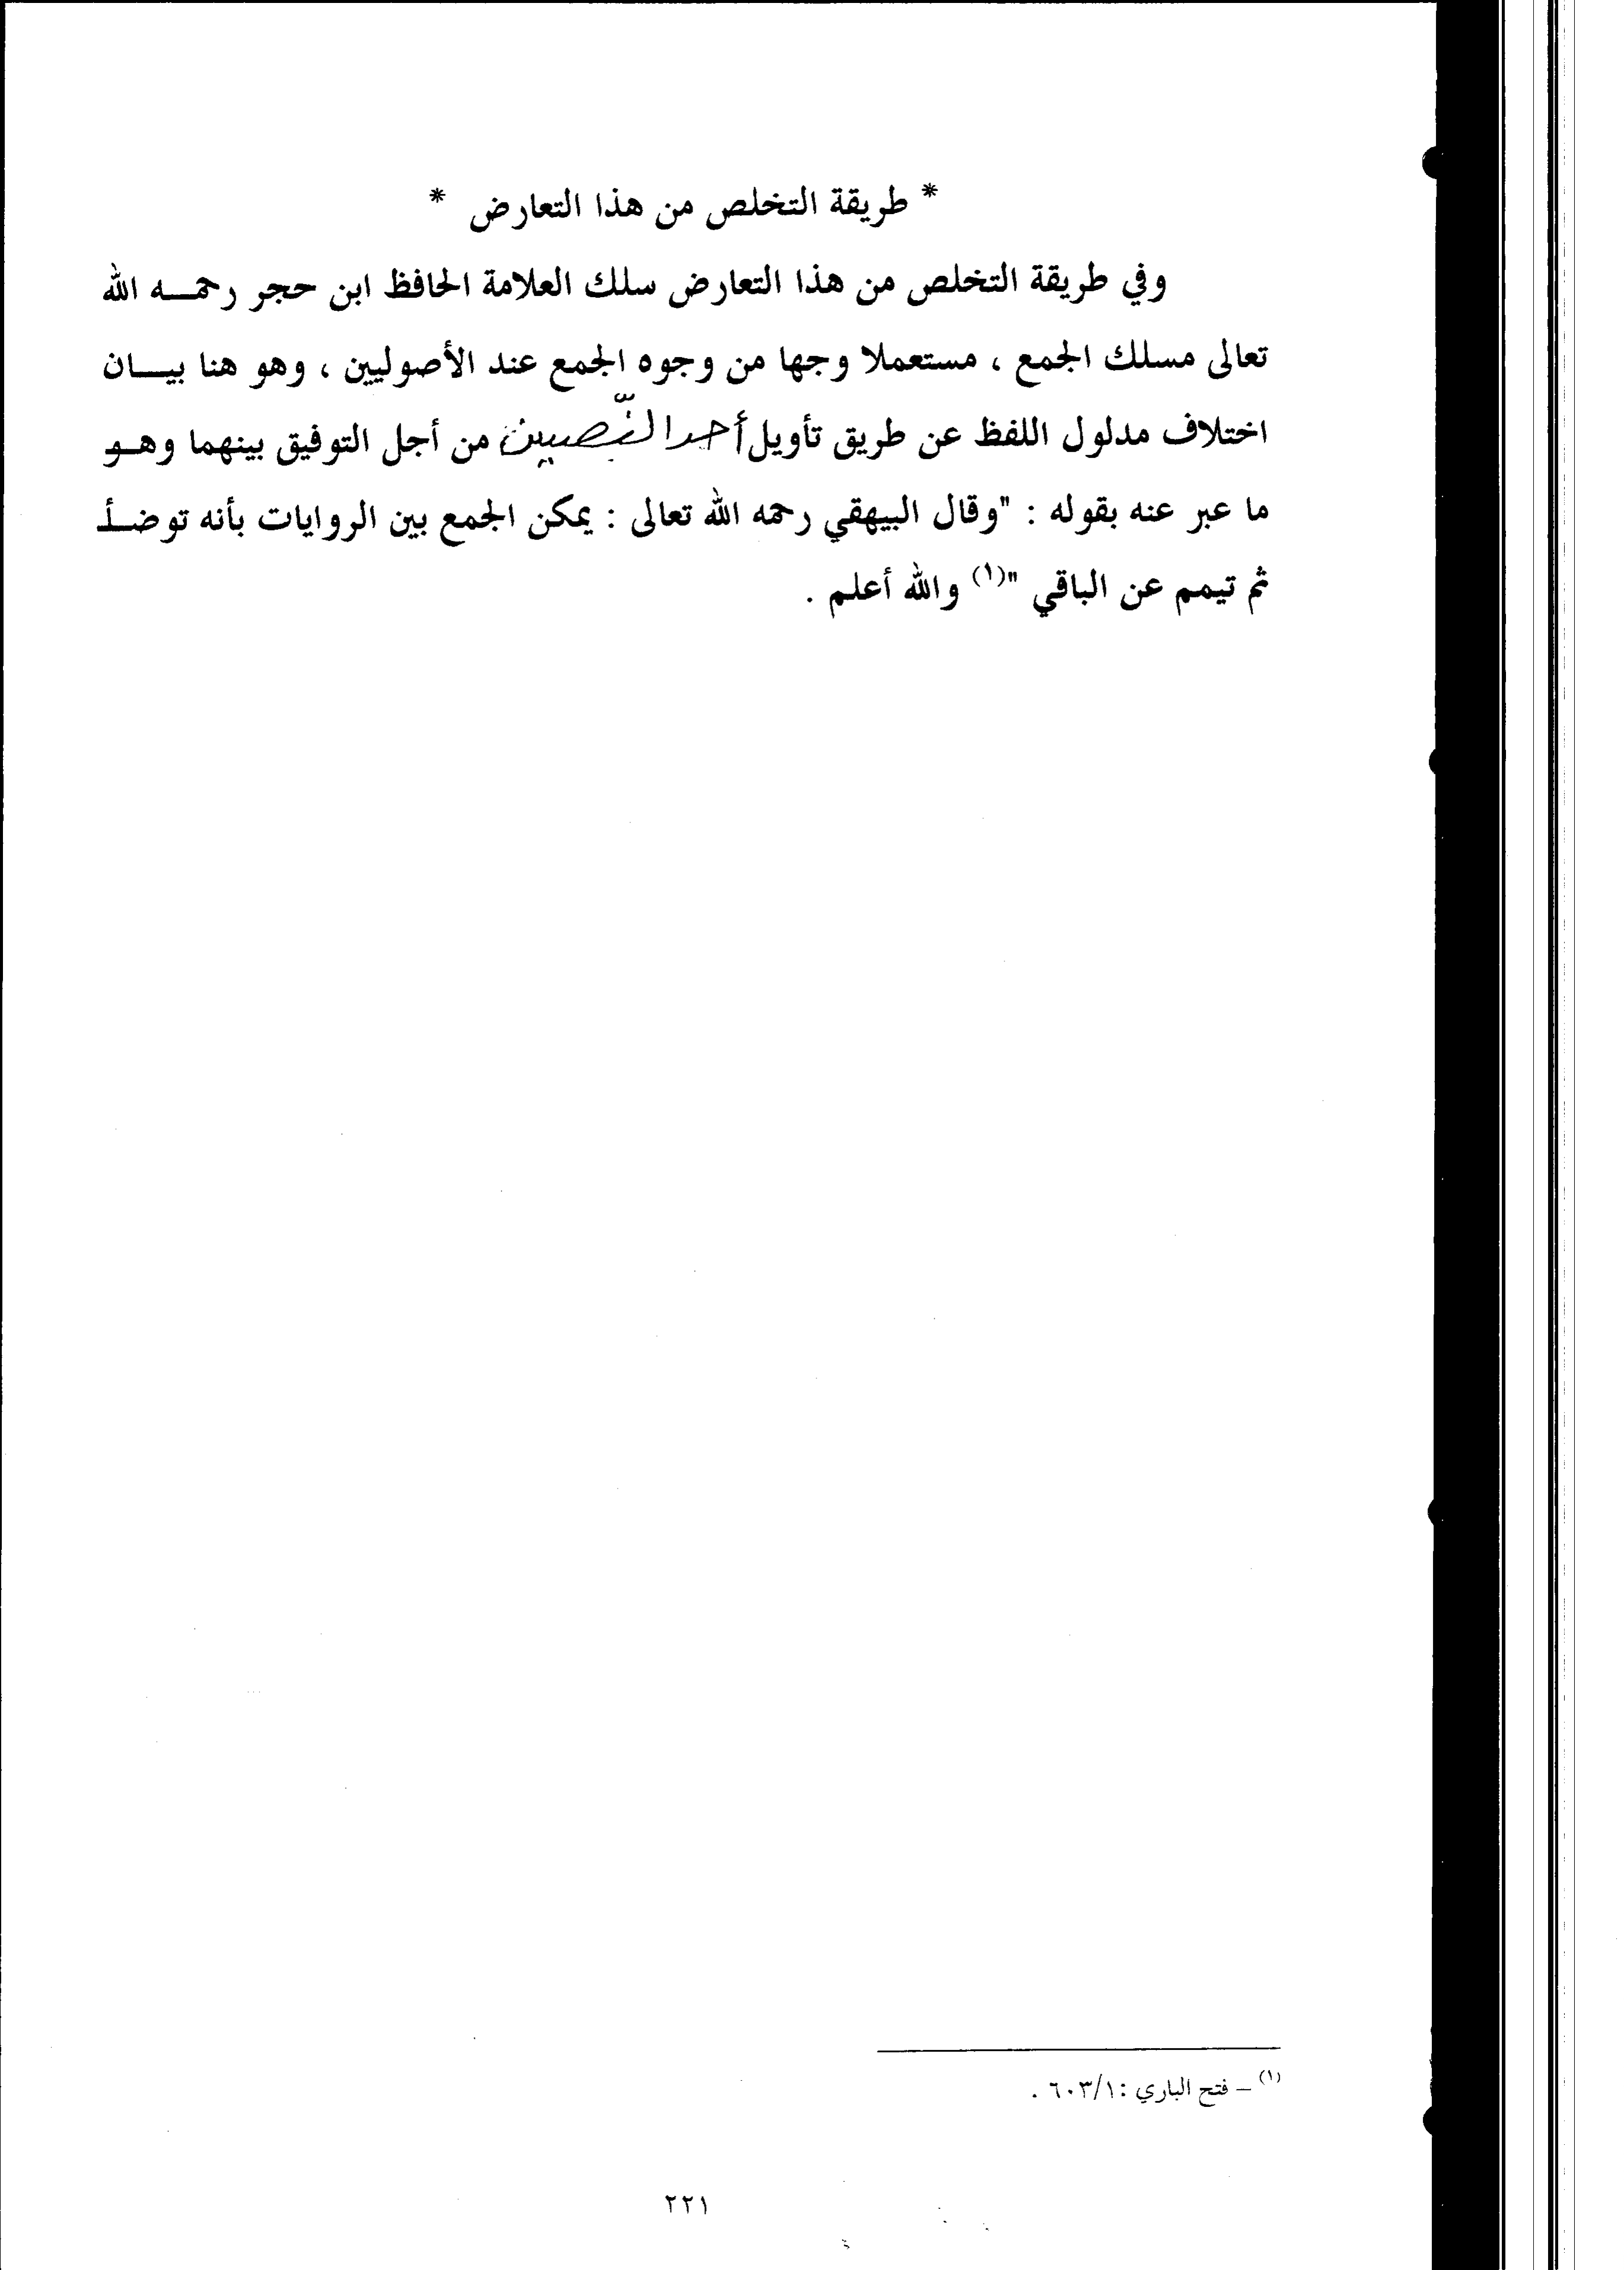 * طريقة التخلص من هذا التعارض *
وفي طريقة التخلص من هذا التعارض سلك العلامة الحافظ ابن حجر رحمـــه الله
تعالى مسلك الجمع ، مستعملا وجها من وجوه الجمع عند الأصوليين ، وهو هنا بيـــان
اختلاف مدلول اللفظ عن طريق تأويل أحد النّصيين من أجل التوفيق بينهما وهــو
ما عبر عنه بقوله : "وقال البيهقي رحمه الله تعالى : يمكن الجمع بين الروايات بأنه توضــأ
ثم تيمم عن الباقي "(١) والله أعلم .
(١) – فتح الباري : ٦٠٣/١ .
٢٢١